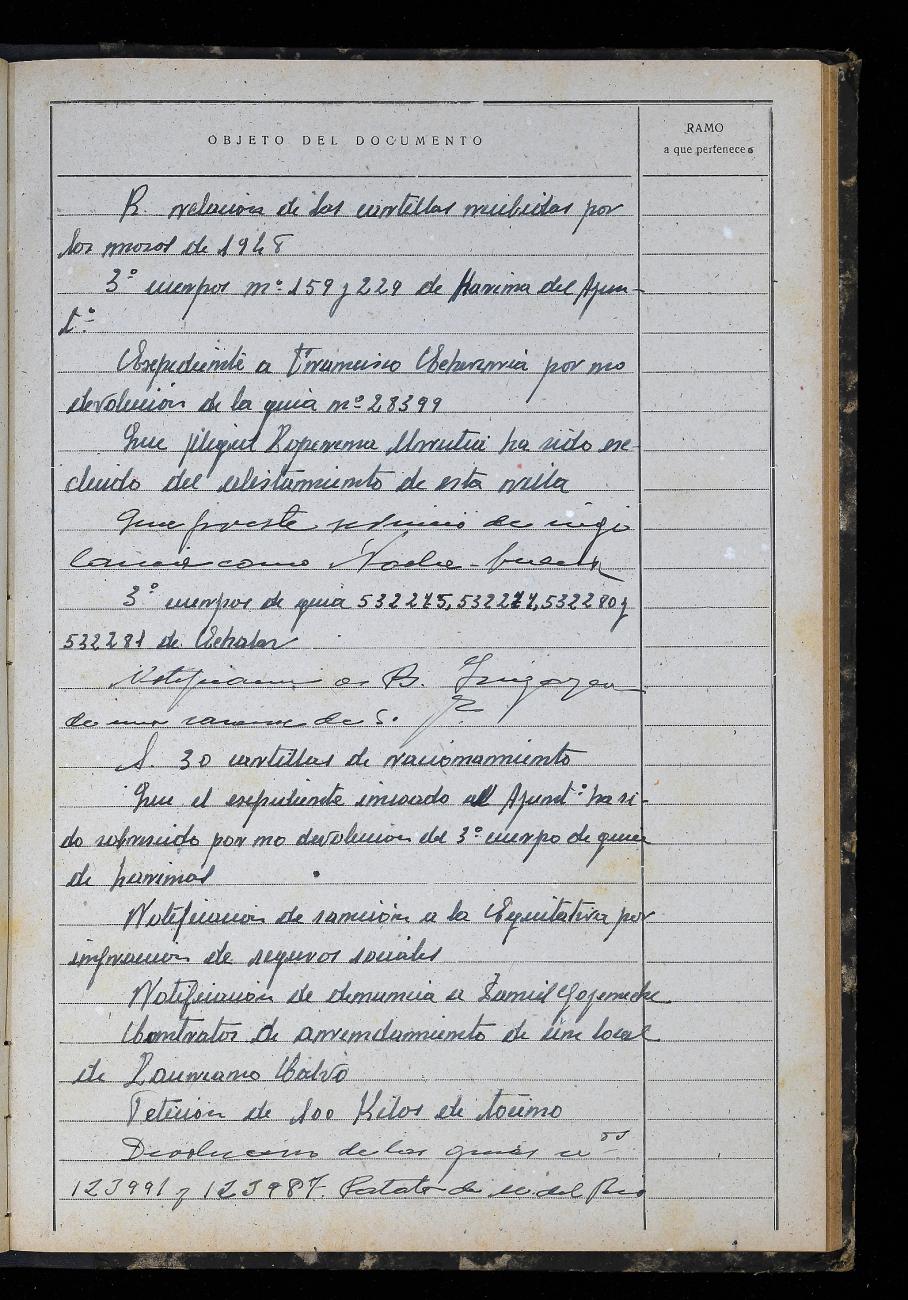 OBJETO DEL DOCUMENTO
RAMO
a que pertenece
R. relacion de las cartillas recibidas por
los mozos de 1948
3º cuerpos nº 159 y 229 de Harina del Ayun-
tº
Expediente a Francisco Echeverria por no
devolución de la guia nº 28399
Que Loperena Urrutia ha sido ex-
cluido del alistamiento de esta villa
Que preste servicio de vigi
lancia como Noche-buena
3º cuerpos de guia 532275, 532277, 532280 y
532281 de Echalar
Notificacion a B.
de una sancion de S.
S. 30 cartillas de racionamiento
Que el expediente incoado al Ayuntº ha si-
do sobreseido por no devolucion del 3º cuerpo de guia
de harinas
Notificacion de sanción a la Equitativa por
infracion de seguros sociales
Notificación de denuncia a Goyeneche
Contratos de arrendamiento de un local
de Laureano Calvo
Peticion de 100 Kilos de tocino
Devolucion de las guias nos
123991 y 123987. Patata de s. del Rio